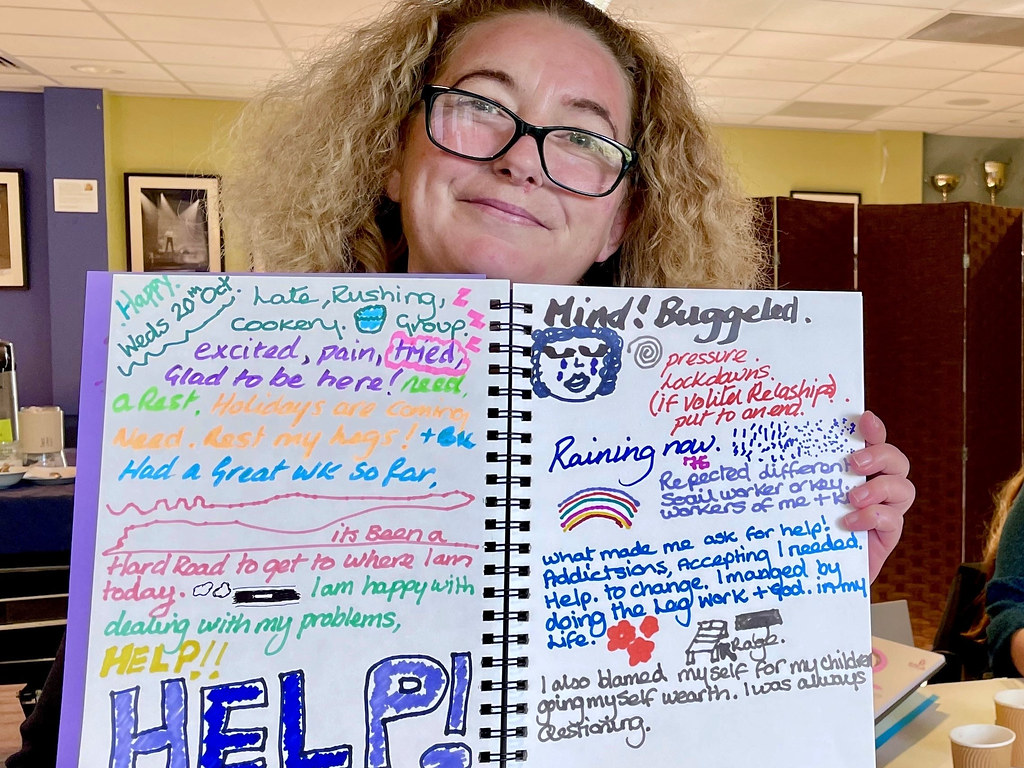 Happy.
Weds 20th Oct.
Late, Rushing,
Cookery. Group.
z
z
z
excited, pain, tired,
Glad to be here! need
a Rest. Holidays are coming
Need. Rest my Legs!
Had a Great wk so far,
its Been a
Hard Road to get to where I am
today. I am happy with
dealing with my problems,
HELP!!
HELP!
Mind! Buggeled.
pressure.
Lockdowns.
(if Volitel Relaships).
put to an end.
Raining now.
76
Repected different
Soail worker or key.
workers of me + k
what made me ask for help!
Addictsions, Accepting I needed.
Help. to change. I manged by
doing the Leg work + God. in my
Life.
Raige.
I also blamed myself for my children
goingmyself wearth. I was allways
Questioning.